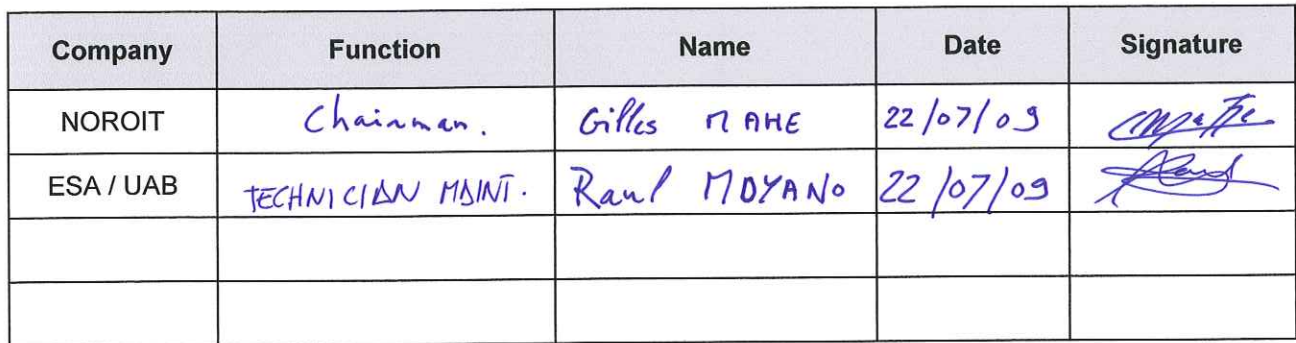 Company Function Name Date Signature
NOROIT Chairman. Gilles MAHE 22/07/09
ESA / UAB TECHNICIAN MAINT. Raul MOYANO 22/07/09